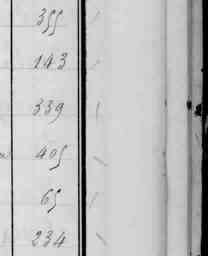 355
143
339
405
65
234